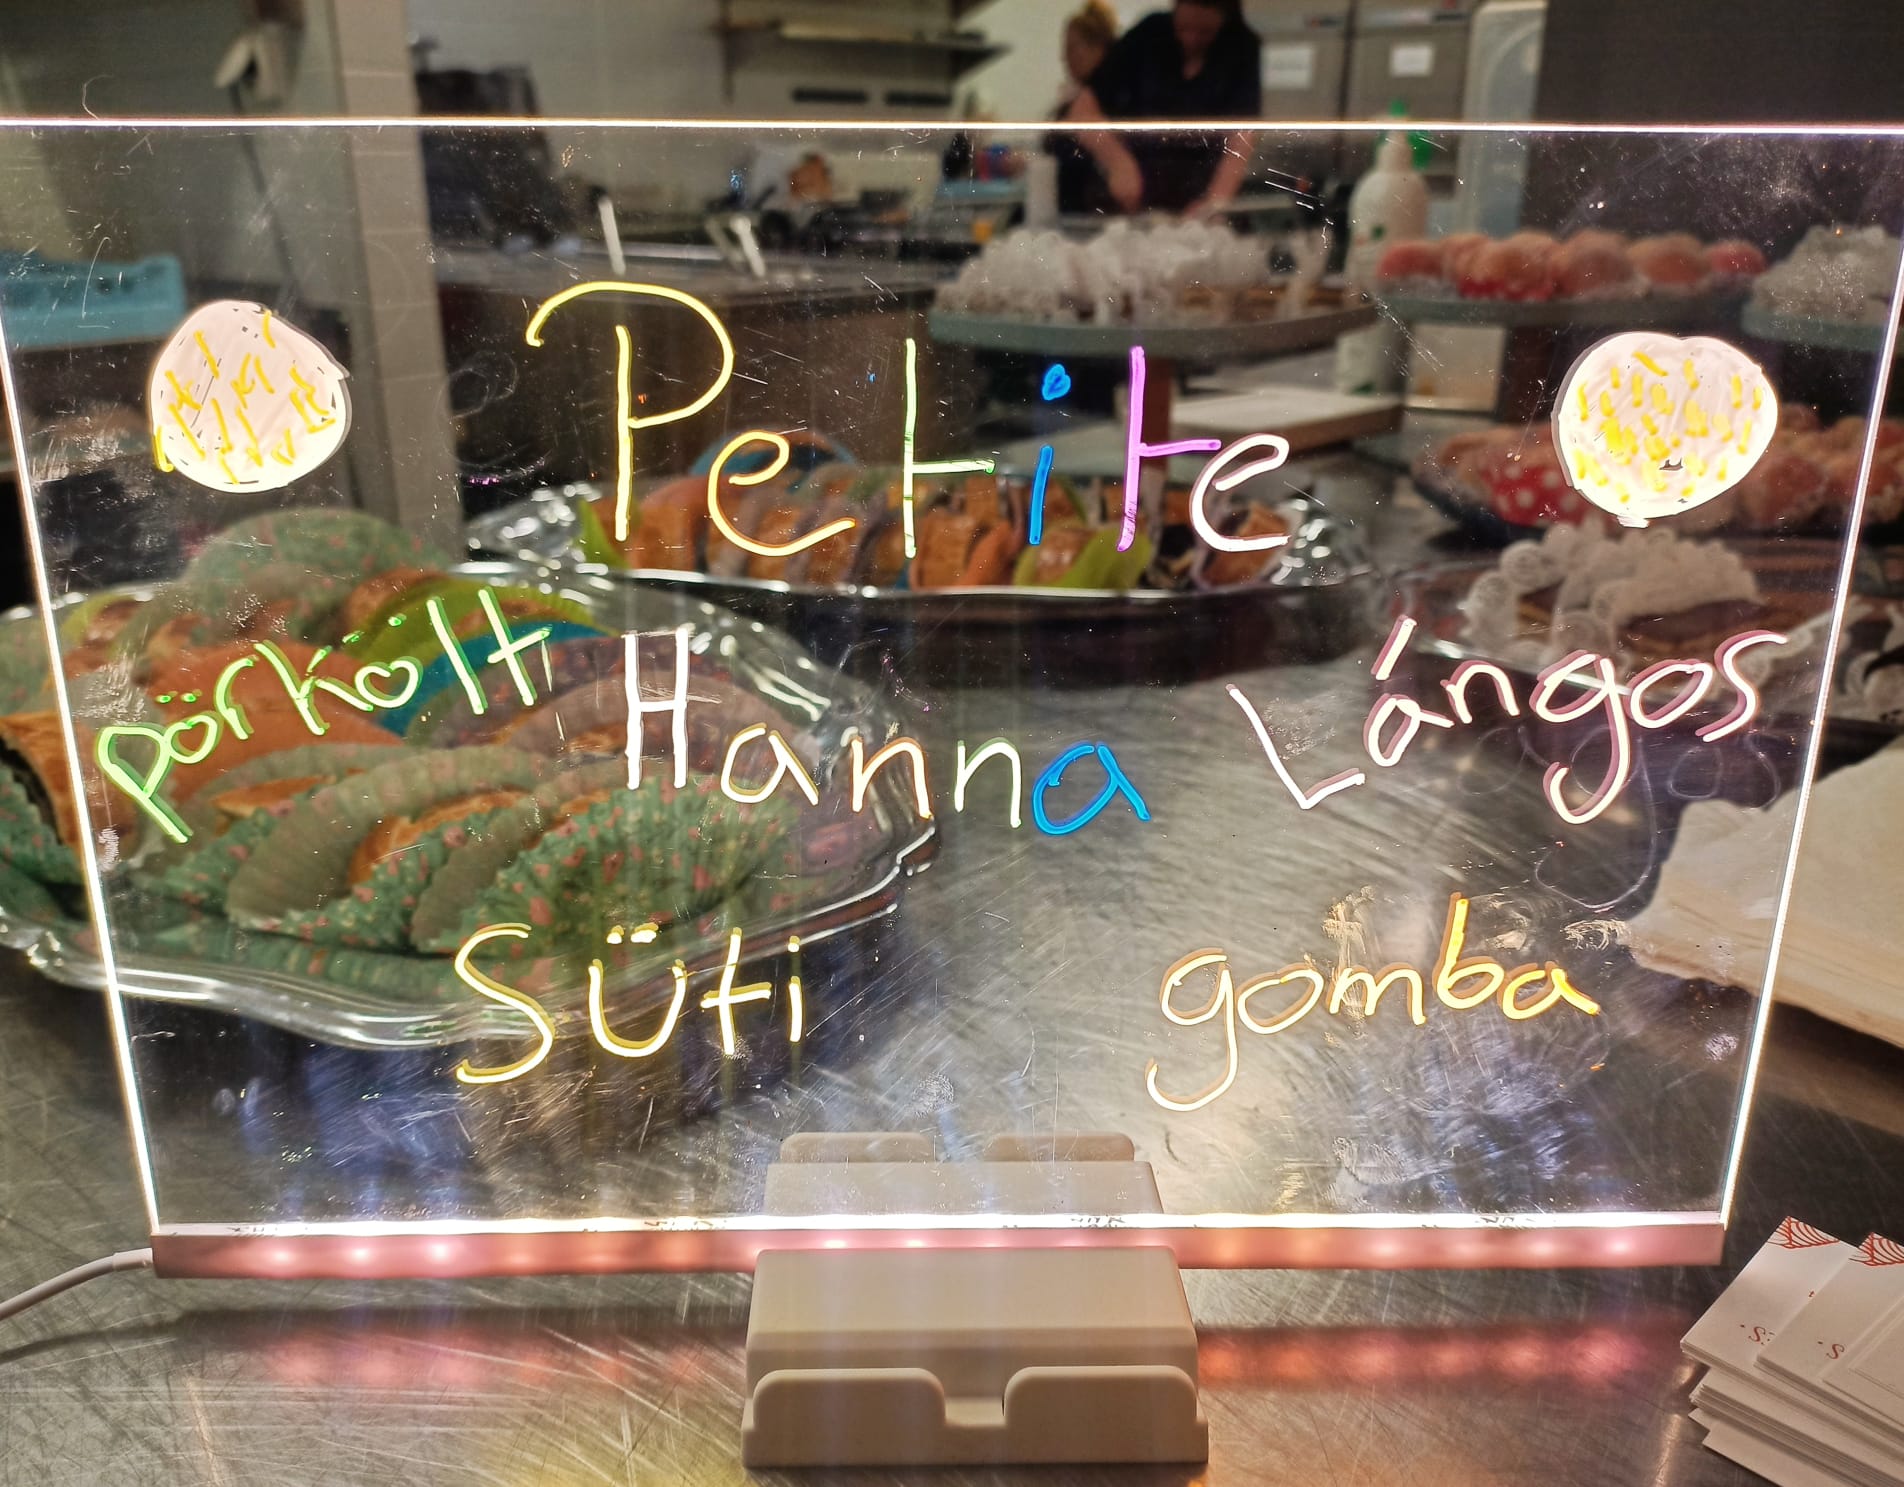 Petite
pörkölt Hanna Lángos
Süti gomba